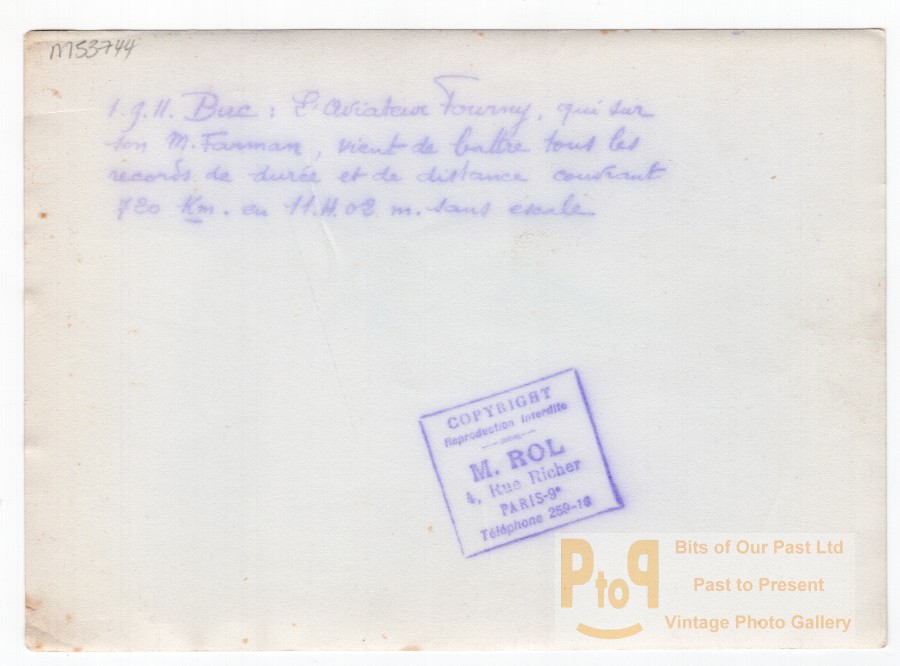 M53744
1.9.11. Buc : L'Aviateur Fourny, qui sur
son M. Farman, vient de battre tous les
records de durée et de distance couvrant
720 Km. en 11.H.02 m. sans escale
COPYRIGHT
Reproduction Interdite
M. ROL
4, Rue Richer
PARIS-9e
Téléphone 259-16
PtoP
Bits of Our Past Ltd
Past to Present
Vintage Photo Gallery